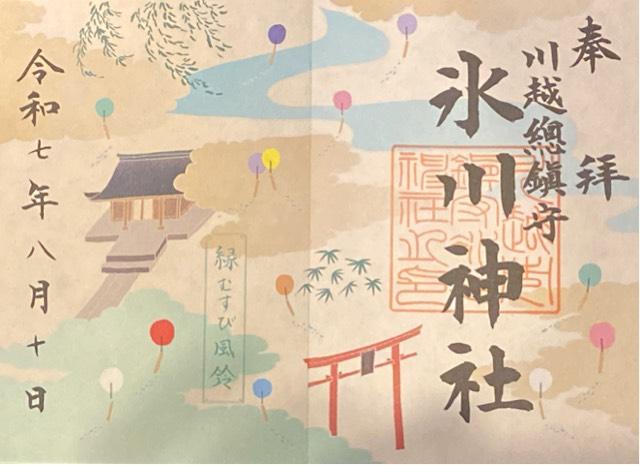 奉拝
川越總鎮守
氷川神社
縁むすび風鈴
令和七年八月十日